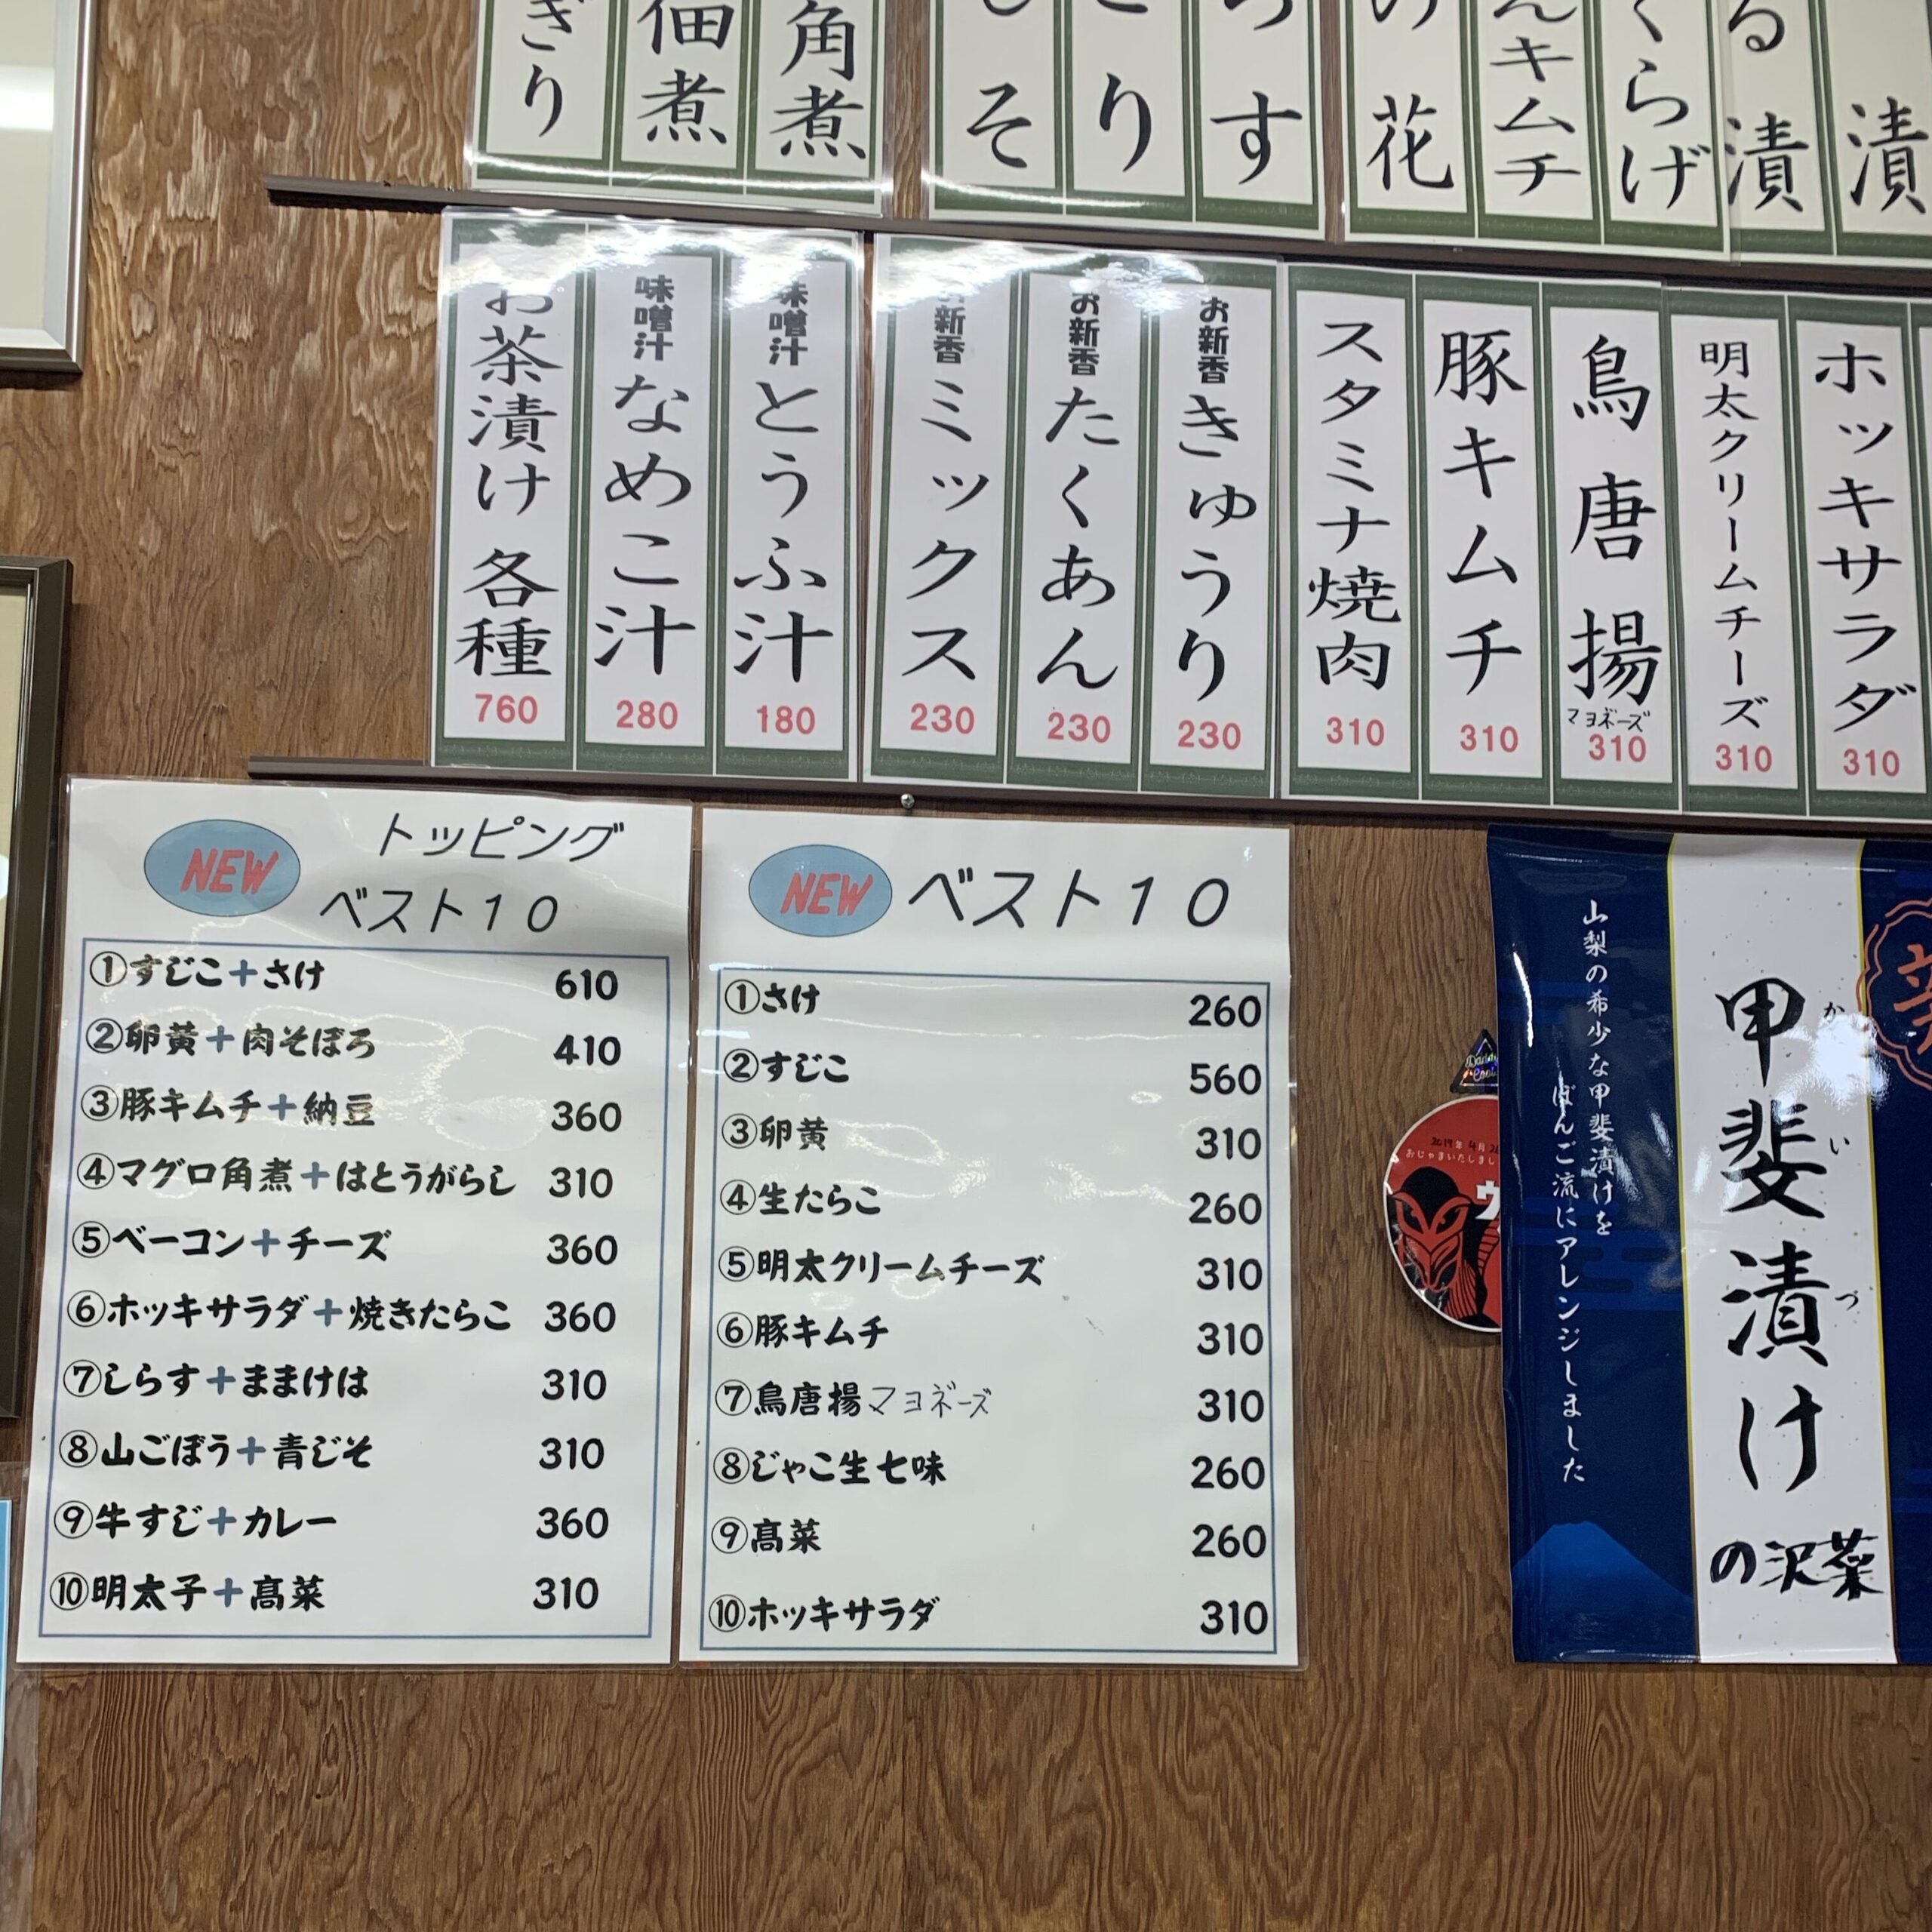 ぎり
佃煮
角煮
そ
り
す
の花
んキムチ
くらげ
る漬
漬
お茶漬け 各種
760
味噌汁
なめこ汁
280
味噌汁
とうふ汁
180
お新香
ミックス
230
お新香
たくあん
230
お新香
きゅうり
230
スタミナ焼肉
310
豚キムチ
310
鳥唐揚
マヨネーズ
310
明太クリームチーズ
310
ホッキサラダ
310
NEW
トッピング
ベスト10
①すじこ+さけ 610
②卵黄+肉そぼろ 410
③豚キムチ+納豆 360
④マグロ角煮+はとうがらし 310
⑤ベーコン+チーズ 360
⑥ホッキサラダ+焼きたらこ 360
⑦しらす+ままけは 310
⑧山ごぼう+青じそ 310
⑨牛すじ+カレー 360
⑩明太子+高菜 310
NEW
ベスト10
①さけ 260
②すじこ 560
③卵黄 310
④生たらこ 260
⑤明太クリームチーズ 310
⑥豚キムチ 310
⑦鳥唐揚マヨネーズ 310
⑧じゃこ生七味 260
⑨高菜 260
⑩ホッキサラダ 310
おじゃまいたしまし
甲斐漬け
かいづ
の沢菜
山梨の希少な甲斐漬けを
ぼんご流にアレンジしました